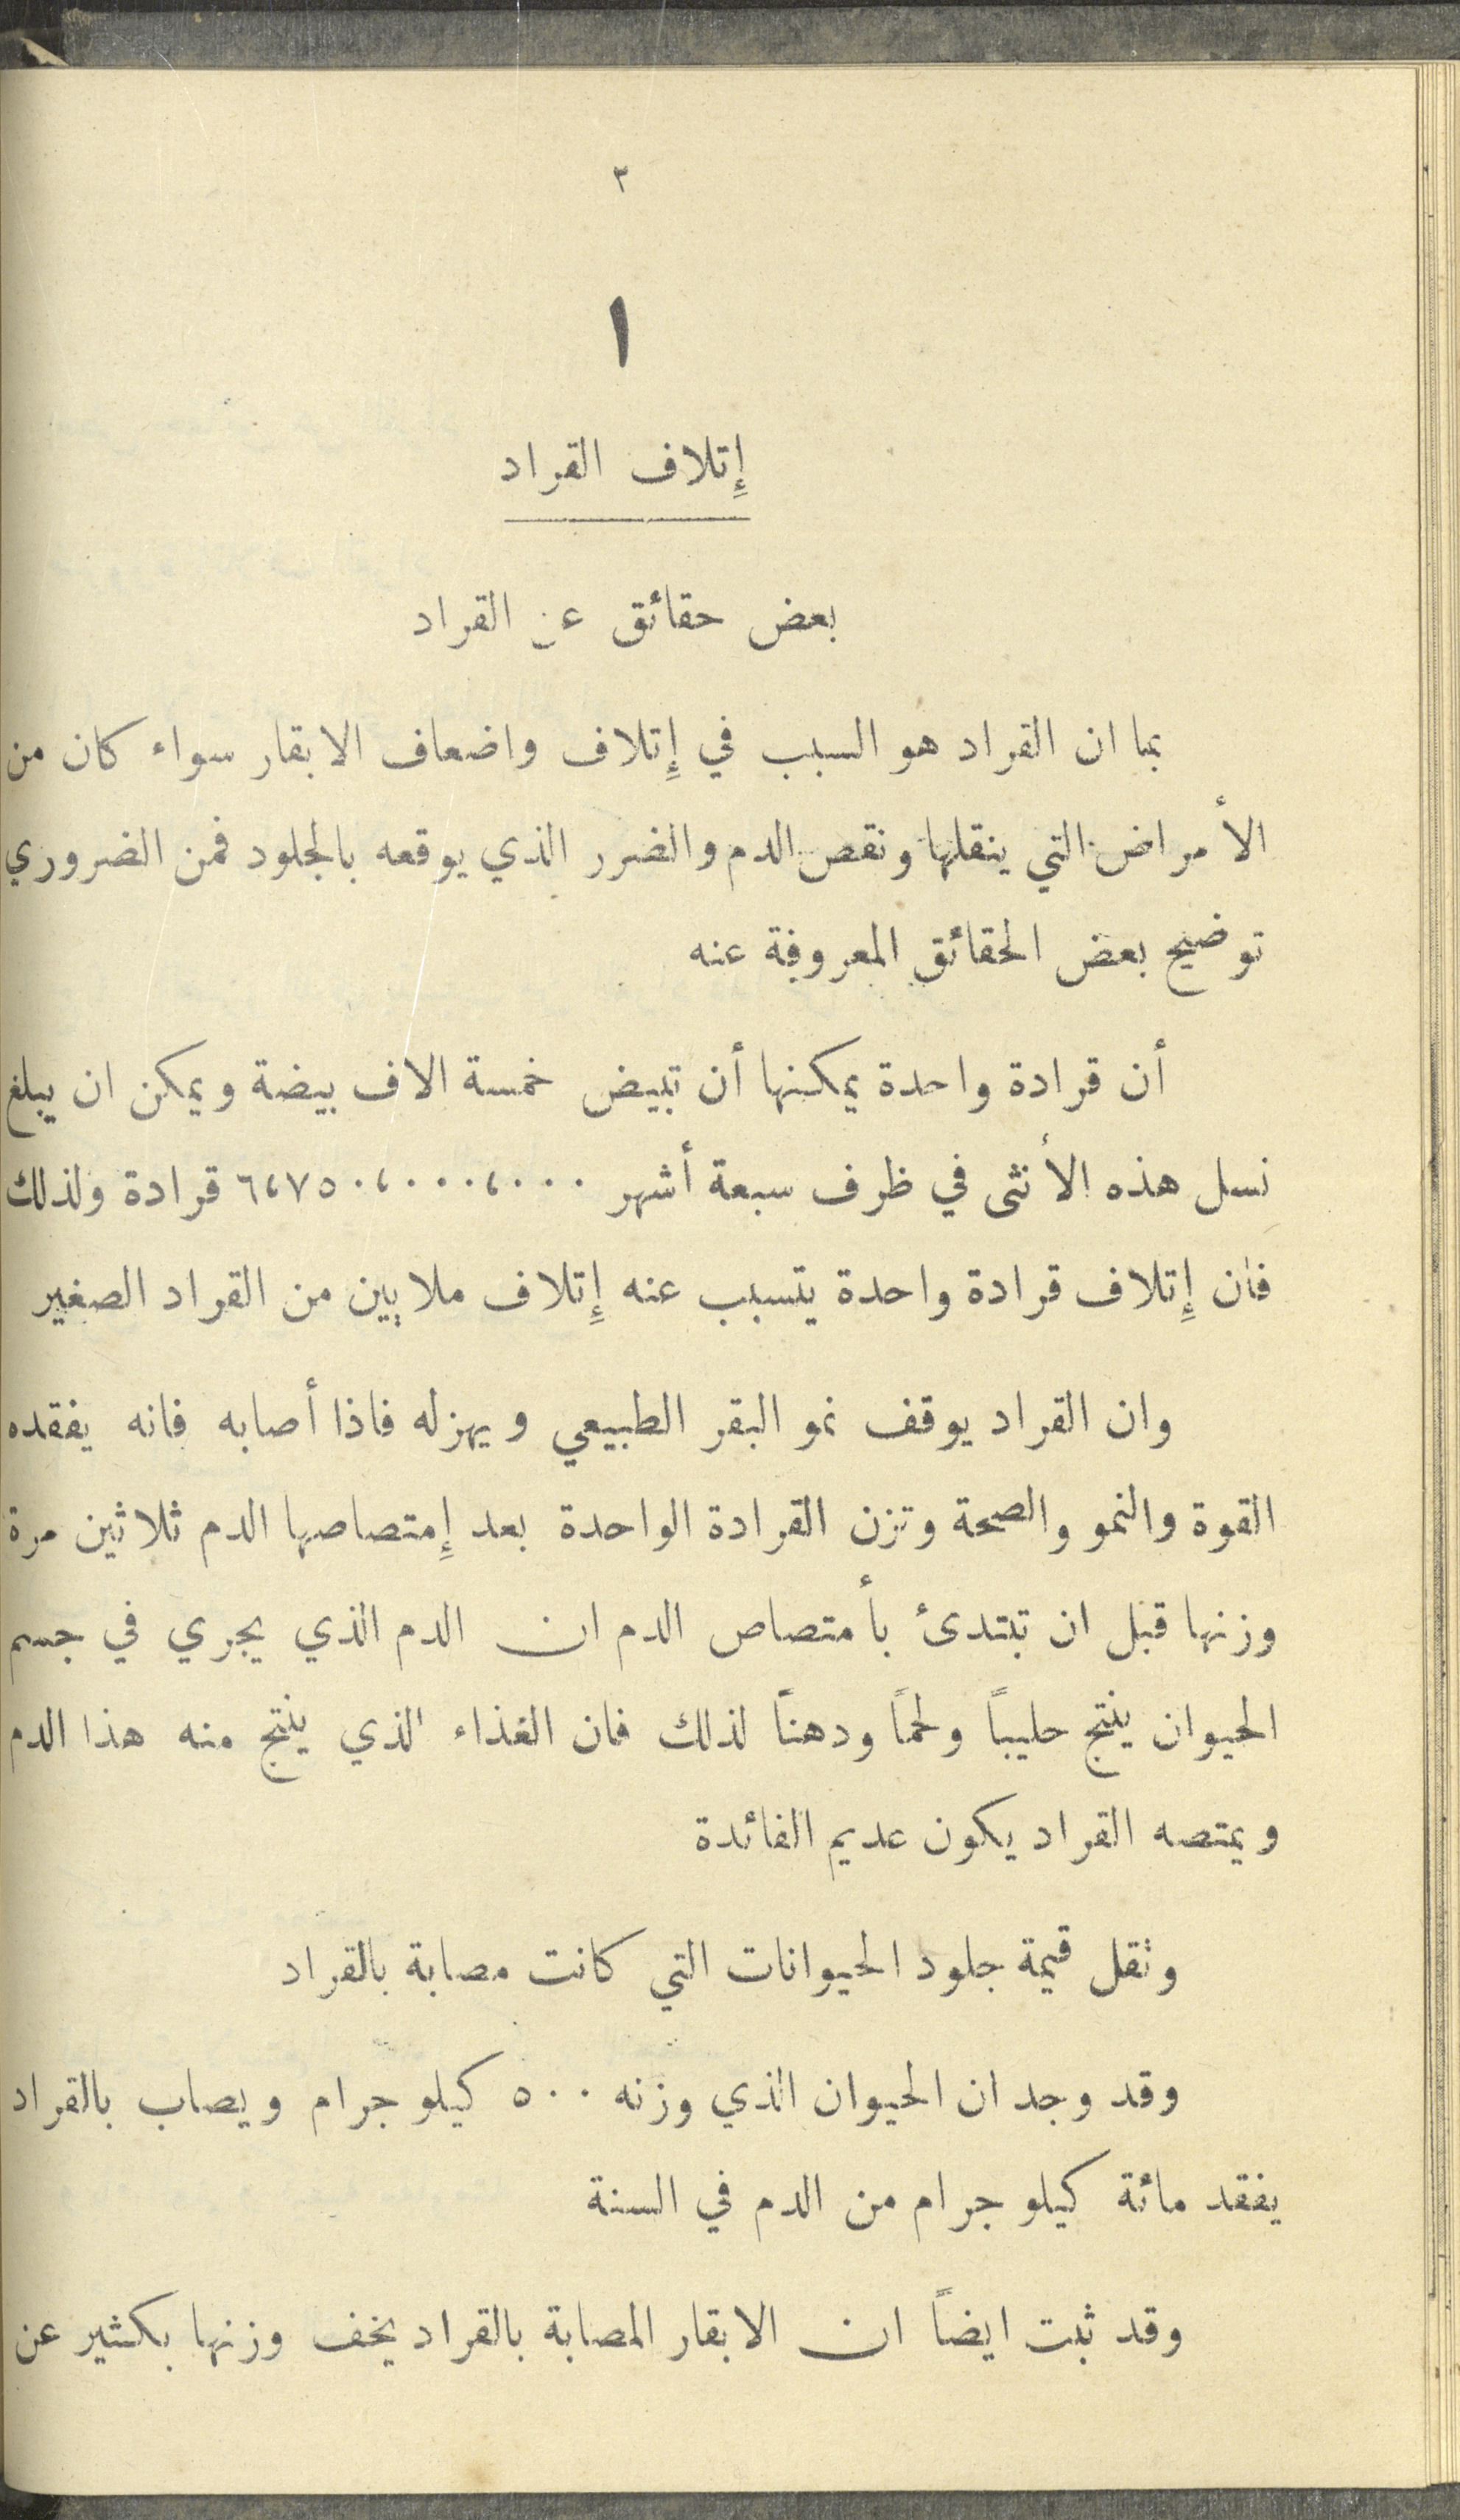 ٣
١
إِتلاف القراد
بعض حقائق عن القراد
بما ان القراد هو السبب في إِتلاف واضعاف الابقار سواء كان من
الأمراض التي ينقلها ونقص الدم والضرر الذي يوقعه بالجلود فمن الضروري
توضيح بعض الحقائق المعروفة عنه
أن قرادة واحدة يمكنها أن تبيض خمسة الاف بيضة ويمكن ان يبلغ
نسل هذه الأنثى في ظرف سبعة أشهر ٦،٧٥٠،٠٠٠،٠٠٠ قرادة ولذلك
فان إِتلاف قرادة واحدة يتسبب عنه إِتلاف ملايين من القراد الصغير
وان القراد يوقف نمو البقر الطبيعي ويهزله فاذا أصابه فانه يفقده
القوة والنمو والصحة وتزن القرادة الواحدة بعد إِمتصاصها الدم ثلاثين مرة
وزنها قبل ان تبتدئ بأمتصاص الدم ان الدم الذي يجري في جسم
الحيوان ينتج حليباً ولحماً ودهناً لذلك فان الغذاء الذي ينتج منه هذا الدم
ويمتصه القراد يكون عديم الفائدة
وتقل قيمة جلود الحيوانات التي كانت مصابة بالقراد
وقد وجد ان الحيوان الذي وزنه ٥٠٠ كيلو جرام ويصاب بالقراد
يفقد مائة كيلو جرام من الدم في السنة
وقد ثبت ايضاً ان الابقار المصابة بالقراد يخف وزنها بكثير عن